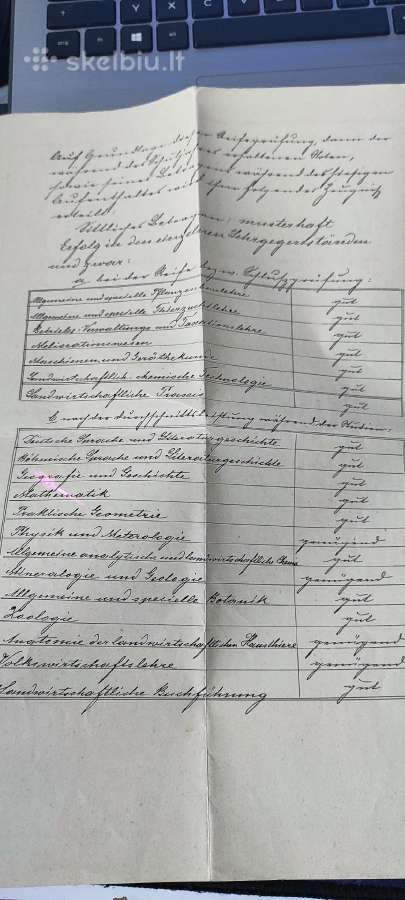 skelbiu.lt
Auf Grundlage dieser Reifeprüfung, dann der
während des Schuljahres erhaltenen Noten,
sowie seines Betragens während des hiesigen
Aufenthaltes wird ihm folgendes Zeugnis
erteilt:
Sittliches Betragen: musterhaft
Erfolg in den einzelnen Lehrgegenständen
und zwar:
a, bei der Reife bezw. Schlußprüfung:
Allgemeine und spezielle Pflanzenbaulehre gut
Allgemeine und spezielle Thierzuchtlehre gut
Betriebs- Verwaltungs und Taxationslehre gut
Meliorationswesen gut
Maschinen und Geräthekunde gut
Landwirtschaftlich-chemische Technologie gut
Landwirtschaftliche Praxis gut
b nach der durchschnittsleistung während der Studien:
Deutsche Sprache und Literaturgeschichte gut
Böhmische Sprache und Literaturgeschichte gut
Geografie und Geschichte gut
Mathematik gut
Praktische Geometrie gut
Physik und Meterologie genügend
Allgemeine analytische und landwirtschaftliche Chemie gut
Mineralogie und Geologie genügend
Allgemeine und spezielle Botanik gut
Zoologie gut
Anatomie der landwirtschaftlichen Hausthiere genügend
Volkswirtschaftslehre genügend
Landwirtschaftliche Buchführung gut